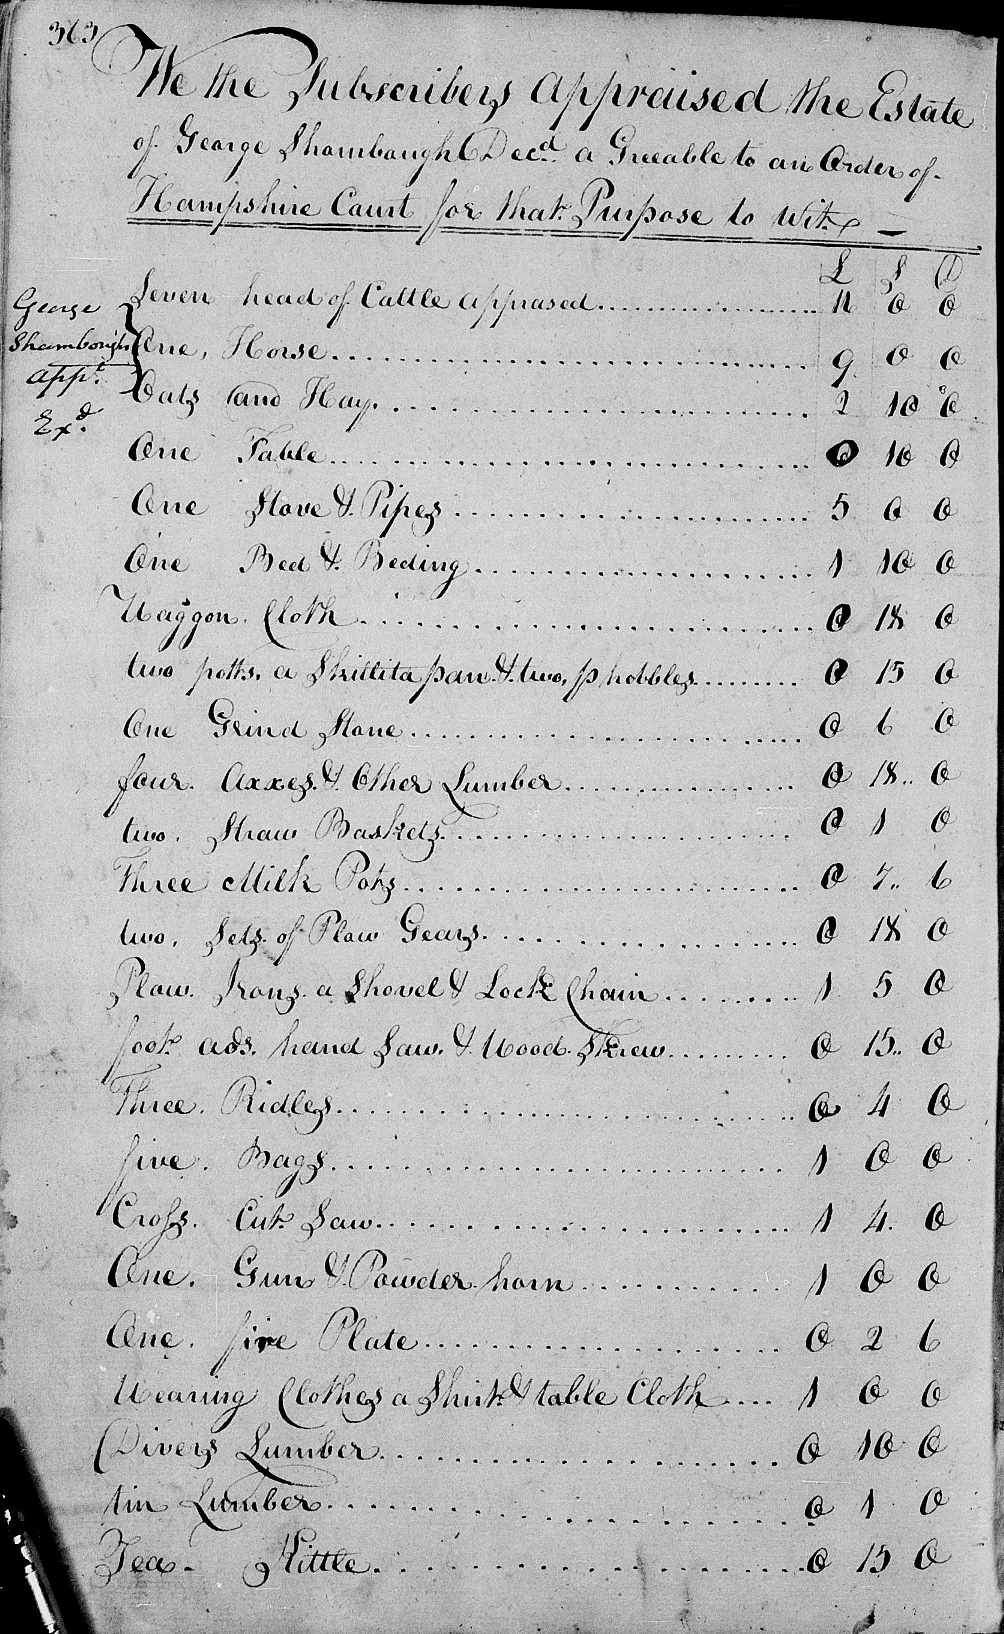 363
We the Subscribers appraised the Estate
of George Shambaugh Decd. a Greeable to an Order of
Hampshire Court for that Purpose to Wit.
£ S D
George
Shambough
appt.
Exd.
Seven head of Cattle appraised 11 0 0
One, Horse 9 0 0
Oats and Hay. 2 10 0
One Table 0 10 0
One Stove & Pipes 5 0 0
One Bed & Beding 1 10 0
Waggon. Cloth 0 18 0
two potts. a Skillita pan. & two, p hobbles 0 15 0
One Grind Stone 0 6 0
four. Axxes. & Other Lumber 0 18 0
two. Straw Baskets 0 1 0
Three Milk Pots 0 7 6
two, Sets. of Plow Gears. 0 18 0
Plow. Irons. a Shovel & Lock Chain 1 5 0
foot ads. hand Saw. & Wood. Skrew 0 15 0
Three. Ridles 0 4 0
five. Bags 1 0 0
Cross. Cut Saw 1 4 0
One. Gun & Powder. horn 1 0 0
One. fire Plate 0 2 6
Wearing Clothes a Shirt & table Cloth 1 0 0
Divers Lumber 0 10 0
tin Lumber 0 1 0
Tea Kittle 0 15 0